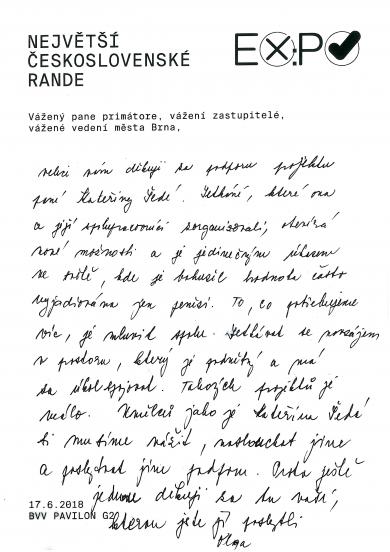 NEJVĚTŠÍ
ČESKOSLOVENSKÉ
RANDE
EXPO
Vážený pane primátore, vážení zastupitelé,
vážené vedení města Brna,
velice vám děkuji za podporu projektu
paní Kateřiny Šedé. Setkání, které ona
a její spolupracovníci zorganizovali, otevírá
nové možnosti a je jedinečným
ve světě, kde je bohužel hodnota často
vyjadřována jen penězi. To, co potřebujeme
víc, je mluvit spolu. Setkávat se navzájem
v prostoru, který je podnětný a má
za úkol spojovat. Takových projektů je
málo. Umělců jako je Kateřina Šedá
si musíme vážit, naslouchat jim
a poskytnout jim podporu. Ještě
jednou děkuji za tu vaši,
kterou jste jí poskytli
Olga
17.6.2018
BVV PAVILON G2